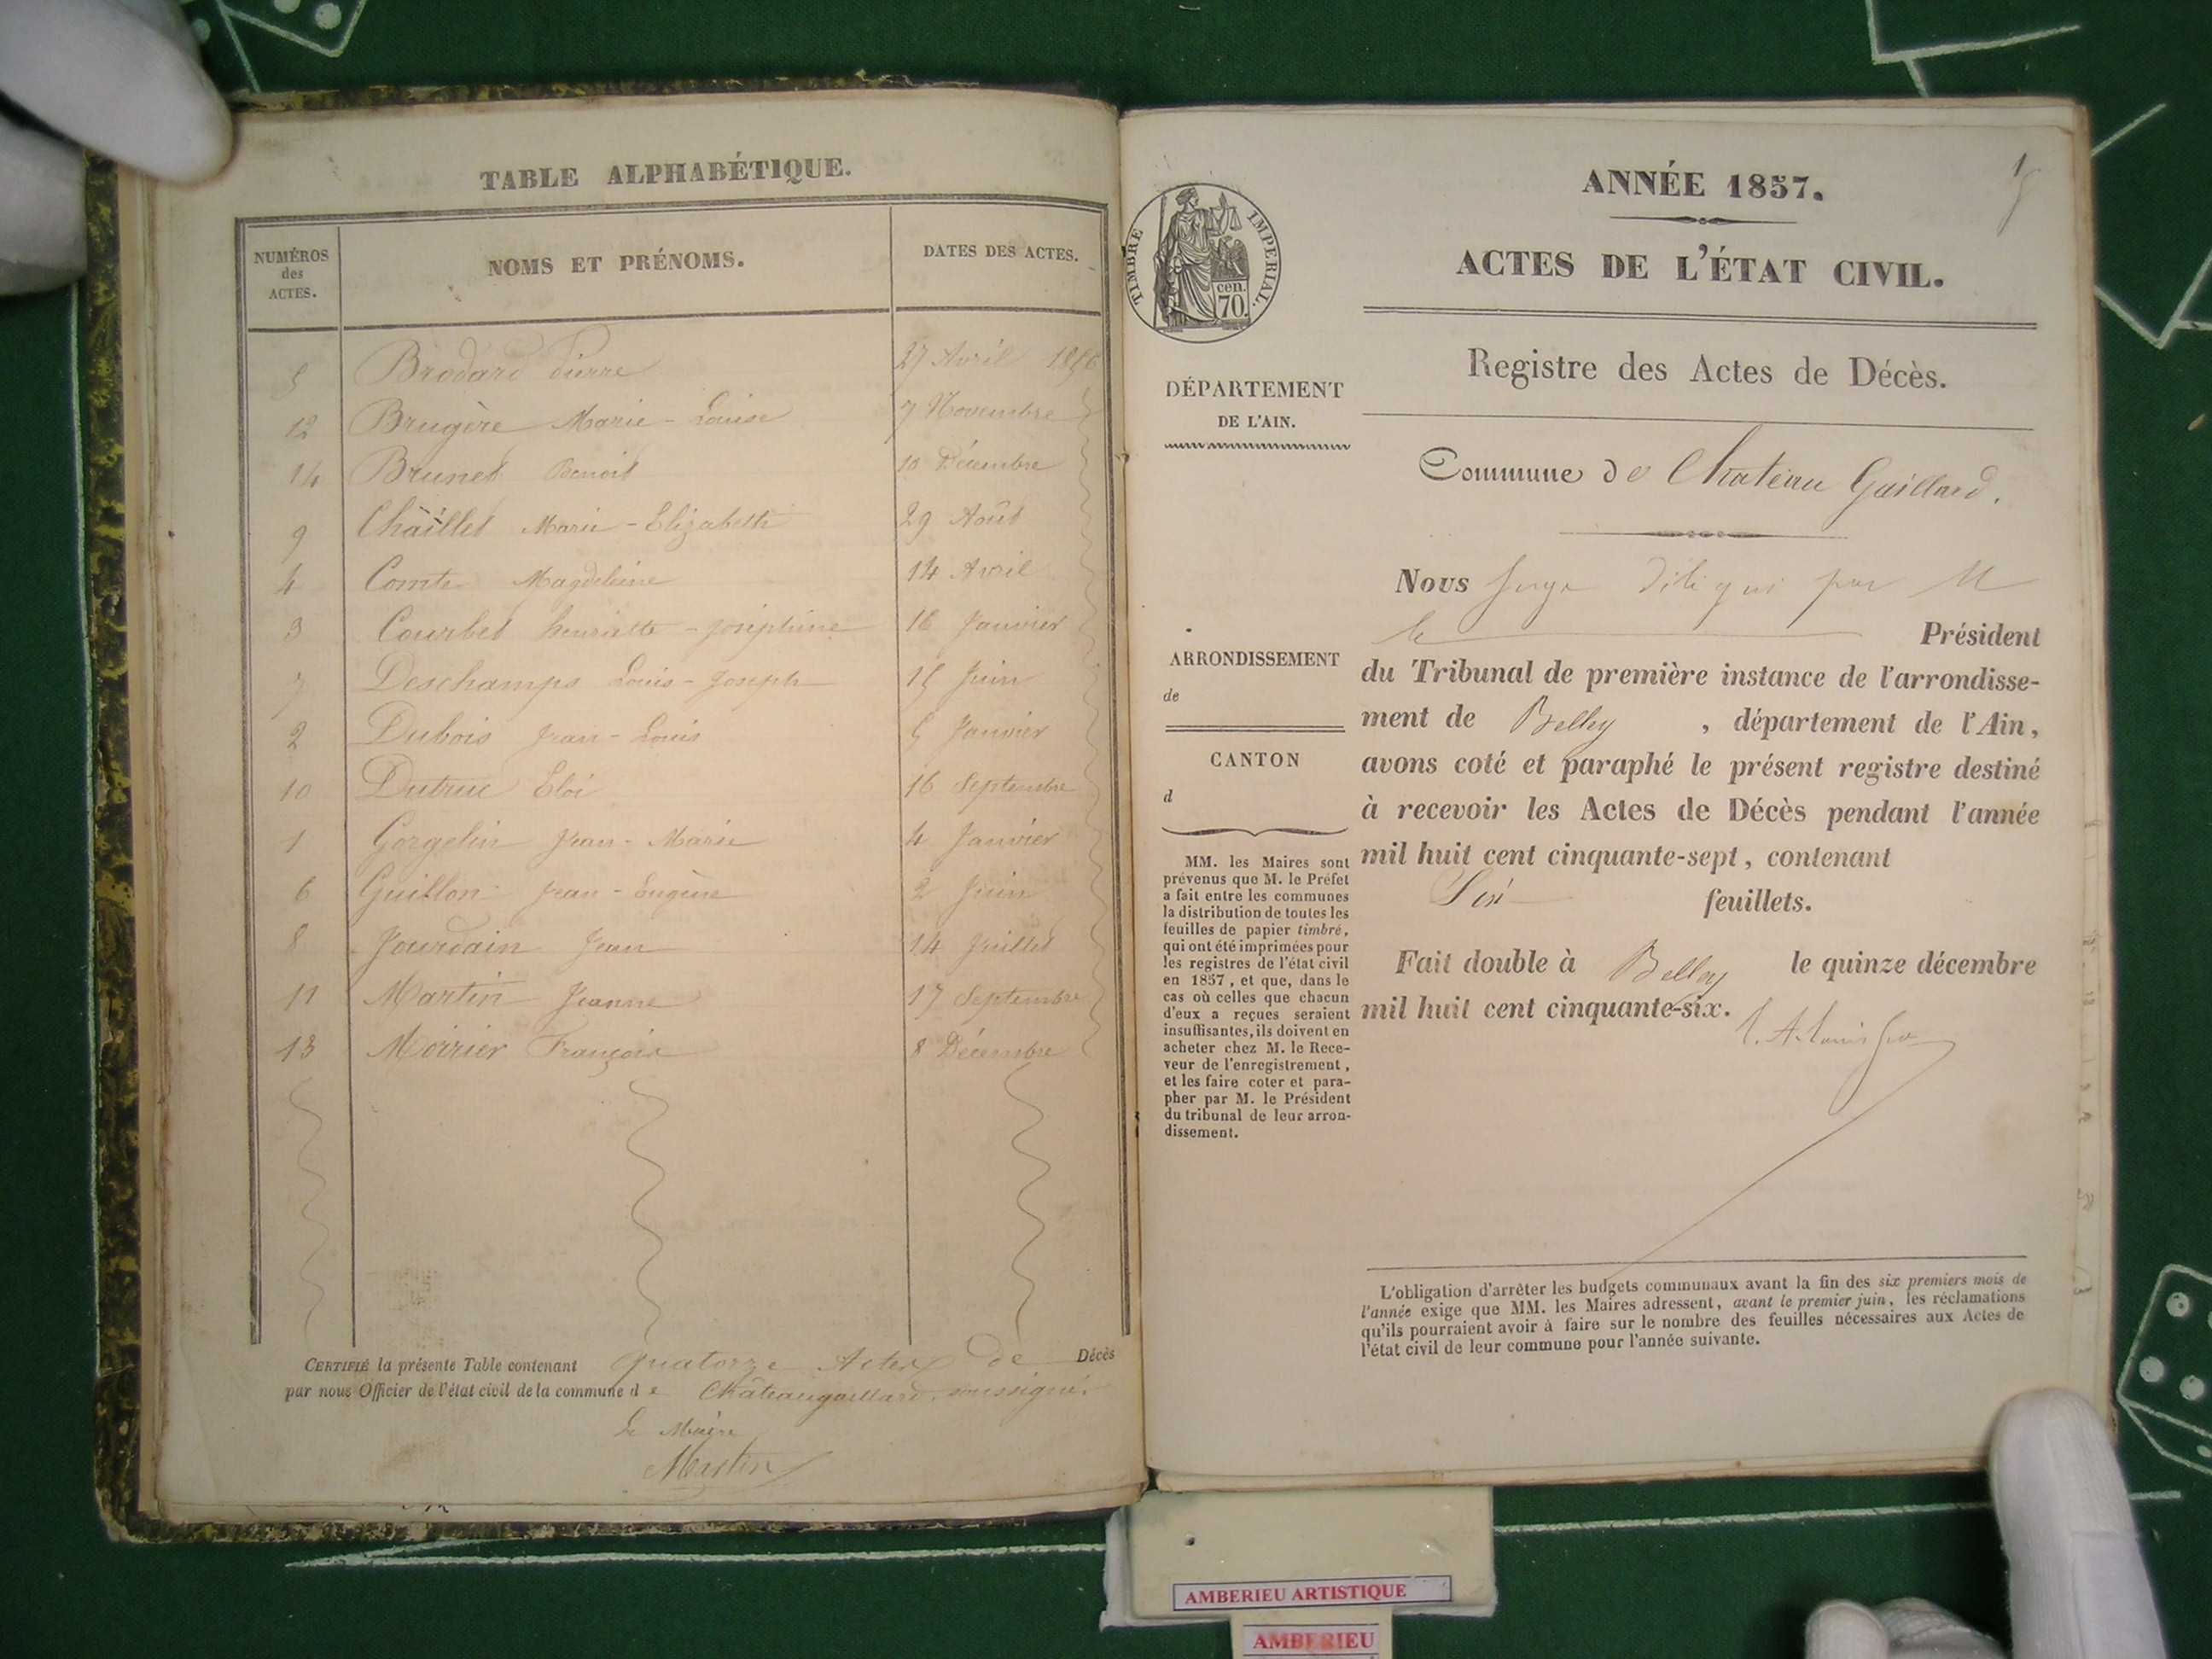 TABLE ALPHABÉTIQUE.
NUMÉROS des ACTES. NOMS ET PRÉNOMS. DATES DES ACTES.
5 Brodard Pierre 27 Avril 1856
12 Brugère Marie-Louise 7 Novembre
14 Brunet Benoit 10 Décembre
9 Chaillet Marie-Elizabeth 29 Août
4 Comte Magdeleine 14 Avril
3 Courbet henriette-joséphine 16 Janvier
7 Deschamps Louis-Joseph 15 Juin
2 Dubois Jean-Louis 5 Janvier
10 Dutruc Eloi 16 Septembre
1 Gorgelin Jean-Marie 4 Janvier
6 Guillon Jean-Eugène 2 Juin
8 Jourdain Jean 14 Juillet
11 Martin Jeanne 17 Septembre
13 Moirier François 8 Décembre
CERTIFIÉ la présente Table contenant quatorze Actes de Décès
par nous Officier de l'état civil de la commune de Châteaugaillard, soussigné.
Le Maire
Martin
1
ANNÉE 1857.
ACTES DE L'ÉTAT CIVIL.
TIMBRE IMPERIAL.
cen.
70.
Registre des Actes de Décès.
DÉPARTEMENT
DE L'AIN.
Commune de Chateau Gaillard.
Nous Juge par M
le Président
ARRONDISSEMENT
de
du Tribunal de première instance de l'arrondisse-
ment de Belley, département de l'Ain,
CANTON
d
avons coté et paraphé le présent registre destiné
à recevoir les Actes de Décès pendant l'année
mil huit cent cinquante-sept, contenant
Six feuillets.
Fait double à Belley le quinze décembre
mil huit cent cinquante-six.
MM. les Maires sont
prévenus que M. le Préfet
a fait entre les communes
la distribution de toutes les
feuilles de papier timbré,
qui ont été imprimées pour
les registres de l'état civil
en 1857, et que, dans le
cas où celles que chacun
d'eux a reçues seraient
insuffisantes, ils doivent en
acheter chez M. le Rece-
veur de l'enregistrement,
et les faire coter et para-
pher par M. le Président
du tribunal de leur arron-
dissement.
L'obligation d'arrêter les budgets communaux avant la fin des six premiers mois de
l'année exige que MM. les Maires adressent, avant le premier juin, les réclamations
qu'ils pourraient avoir à faire sur le nombre des feuilles nécessaires aux Actes de
l'état civil de leur commune pour l'année suivante.
AMBERIEU ARTISTIQUE
AMBERIEU